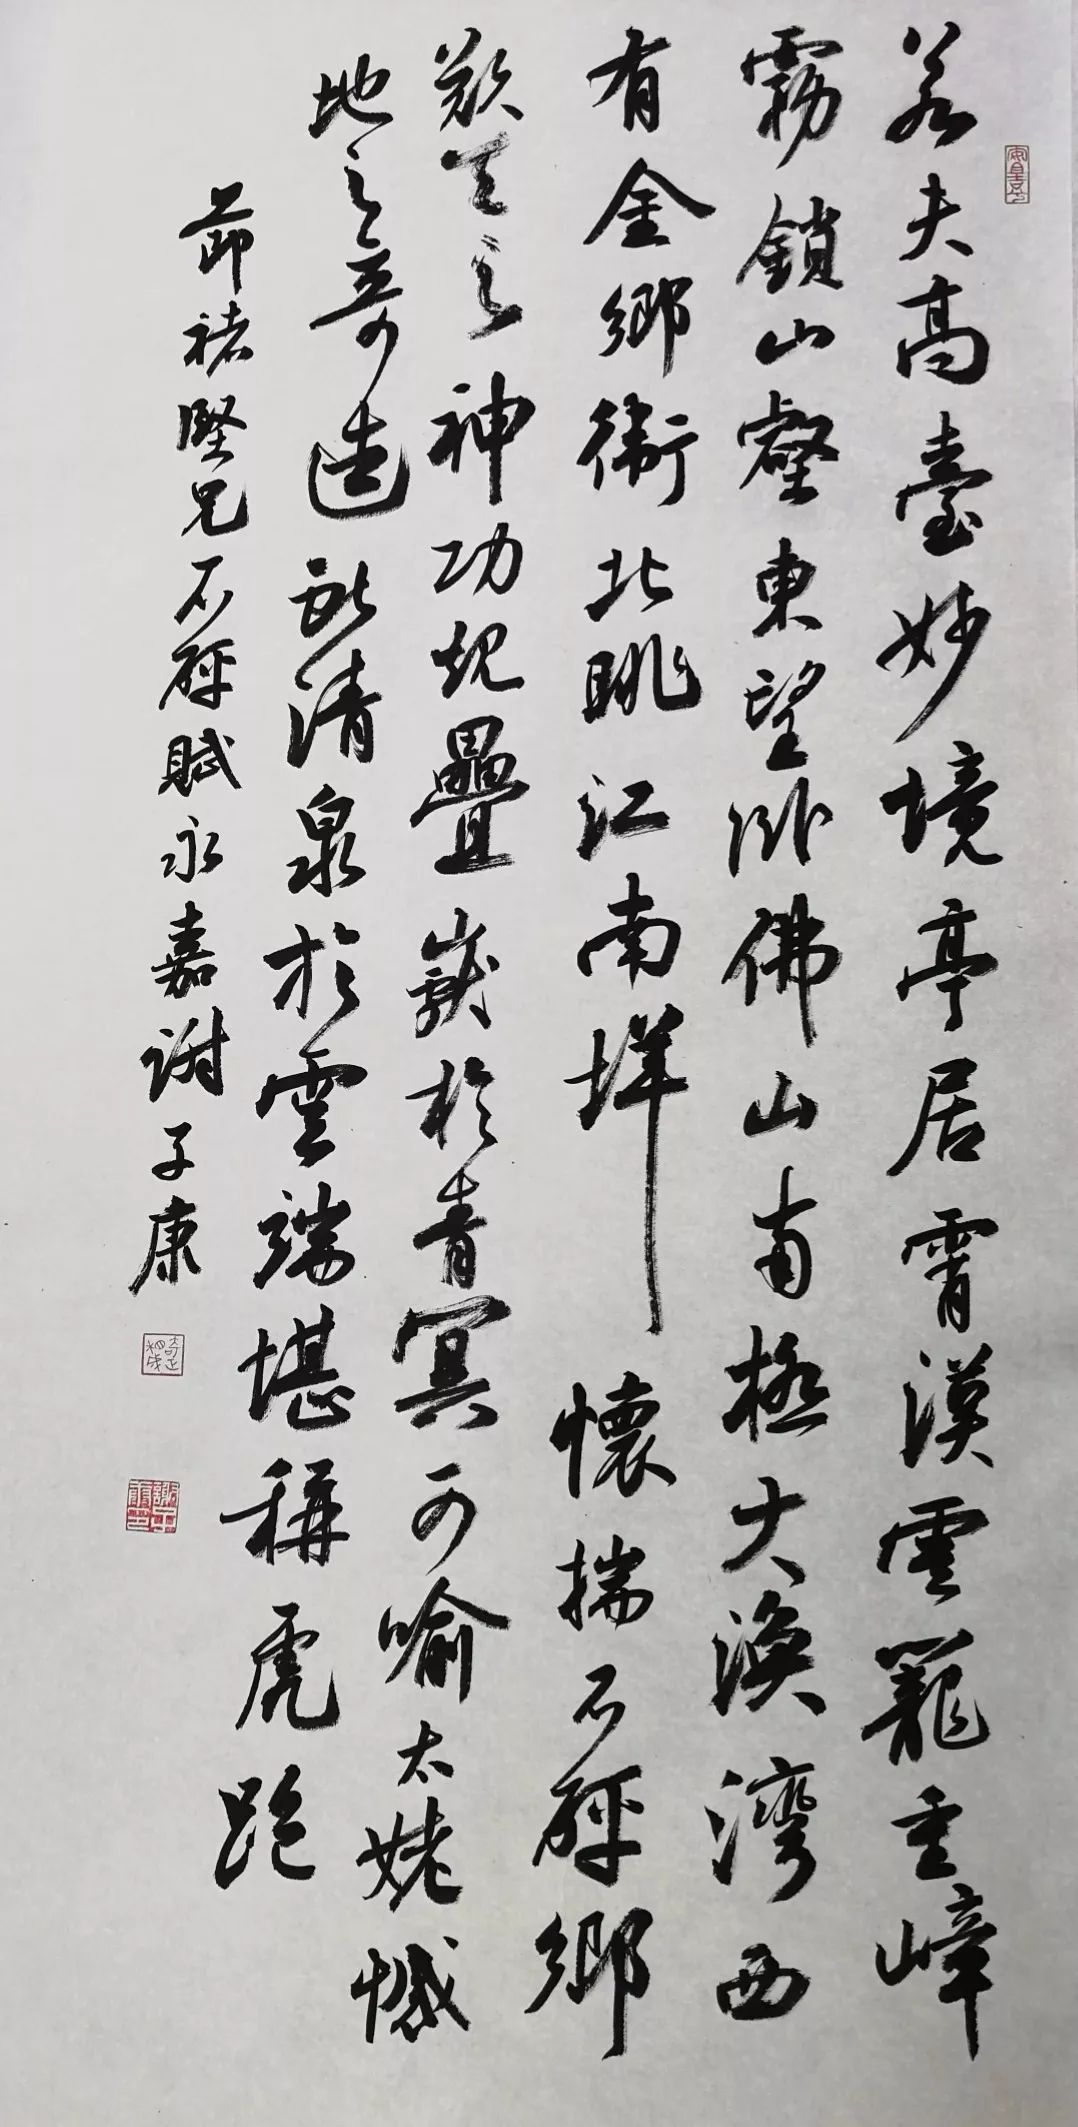 若夫高臺妙境亭居霄漢雲籠重嶂
霧鎖山壑東望卧佛山南極大漁灣西
有金鄉衛北眺江南垟懷揣石砰鄉
歎天之神功觀疊於青冥可喻太姥憾
地之奇造清泉於雲端堪稱虎跑
節褚堅兄石砰賦永嘉謝子康